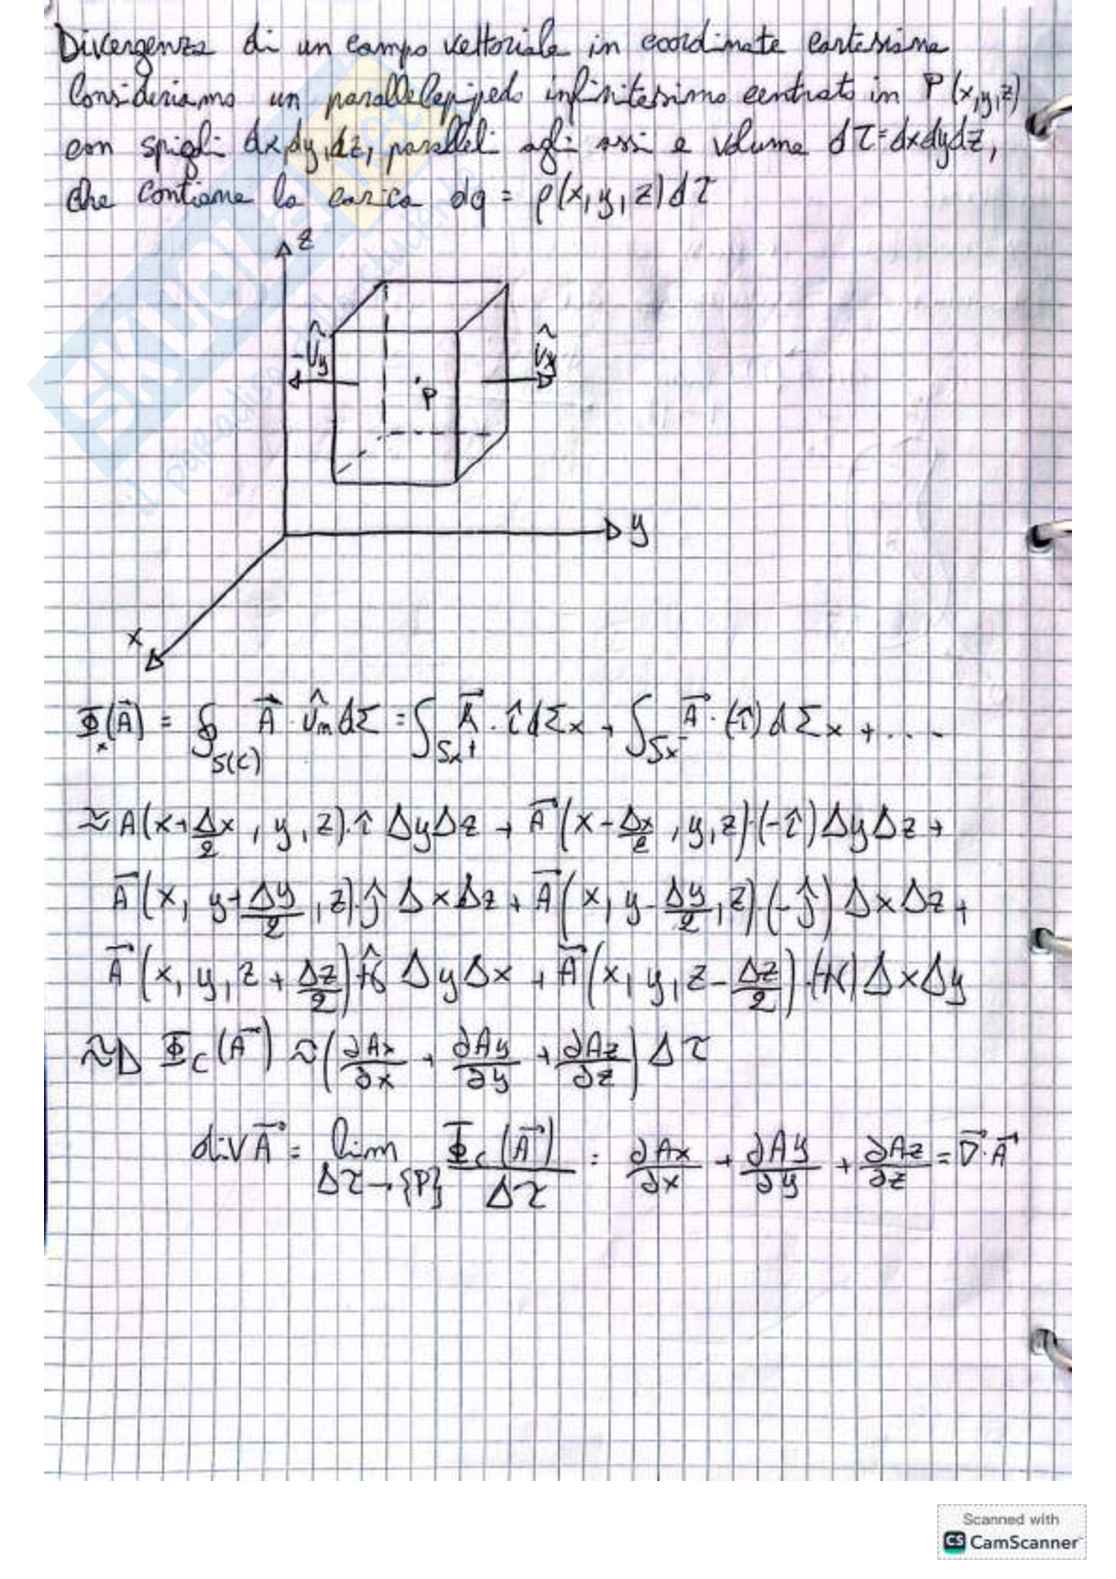 Divergenza di un campo vettoriale in coordinate cartesiane
Consideriamo un parallelepipedo infinitesimo centrato in P(x,y,z)
con spigoli dx,dy,dz, paralleli agli assi e volume dτ=dxdydz,
che contiene la carica dq = ρ(x,y,z)dτ
z
-Ûy
Ûy
P
y
x
Φ(A⃗) = ∮S(C) A⃗·Ûn dΣ = ∫Sx+ A⃗·î dΣx + ∫Sx- A⃗·(-î) dΣx + ....
≈ A(x+Δx/2, y, z)·î ΔyΔz + A⃗(x-Δx/2, y, z)·(-î)ΔyΔz +
A⃗(x, y+Δy/2, z)·ĵ ΔxΔz + A⃗(x, y-Δy/2, z)·(-ĵ) ΔxΔz +
A⃗(x, y, z+Δz/2)·k̂ ΔyΔx + A⃗(x, y, z-Δz/2)·(-k) ΔxΔy
≈> Φc(A⃗) ≈ (∂Ax/∂x + ∂Ay/∂y + ∂Az/∂z) Δτ
div A⃗ = lim Δτ→{P} Φc(A⃗)/Δτ = ∂Ax/∂x + ∂Ay/∂y + ∂Az/∂z = ∇⃗·A⃗
SKUOLA.net
il paradiso dello studente
Scanned with
CS CamScanner